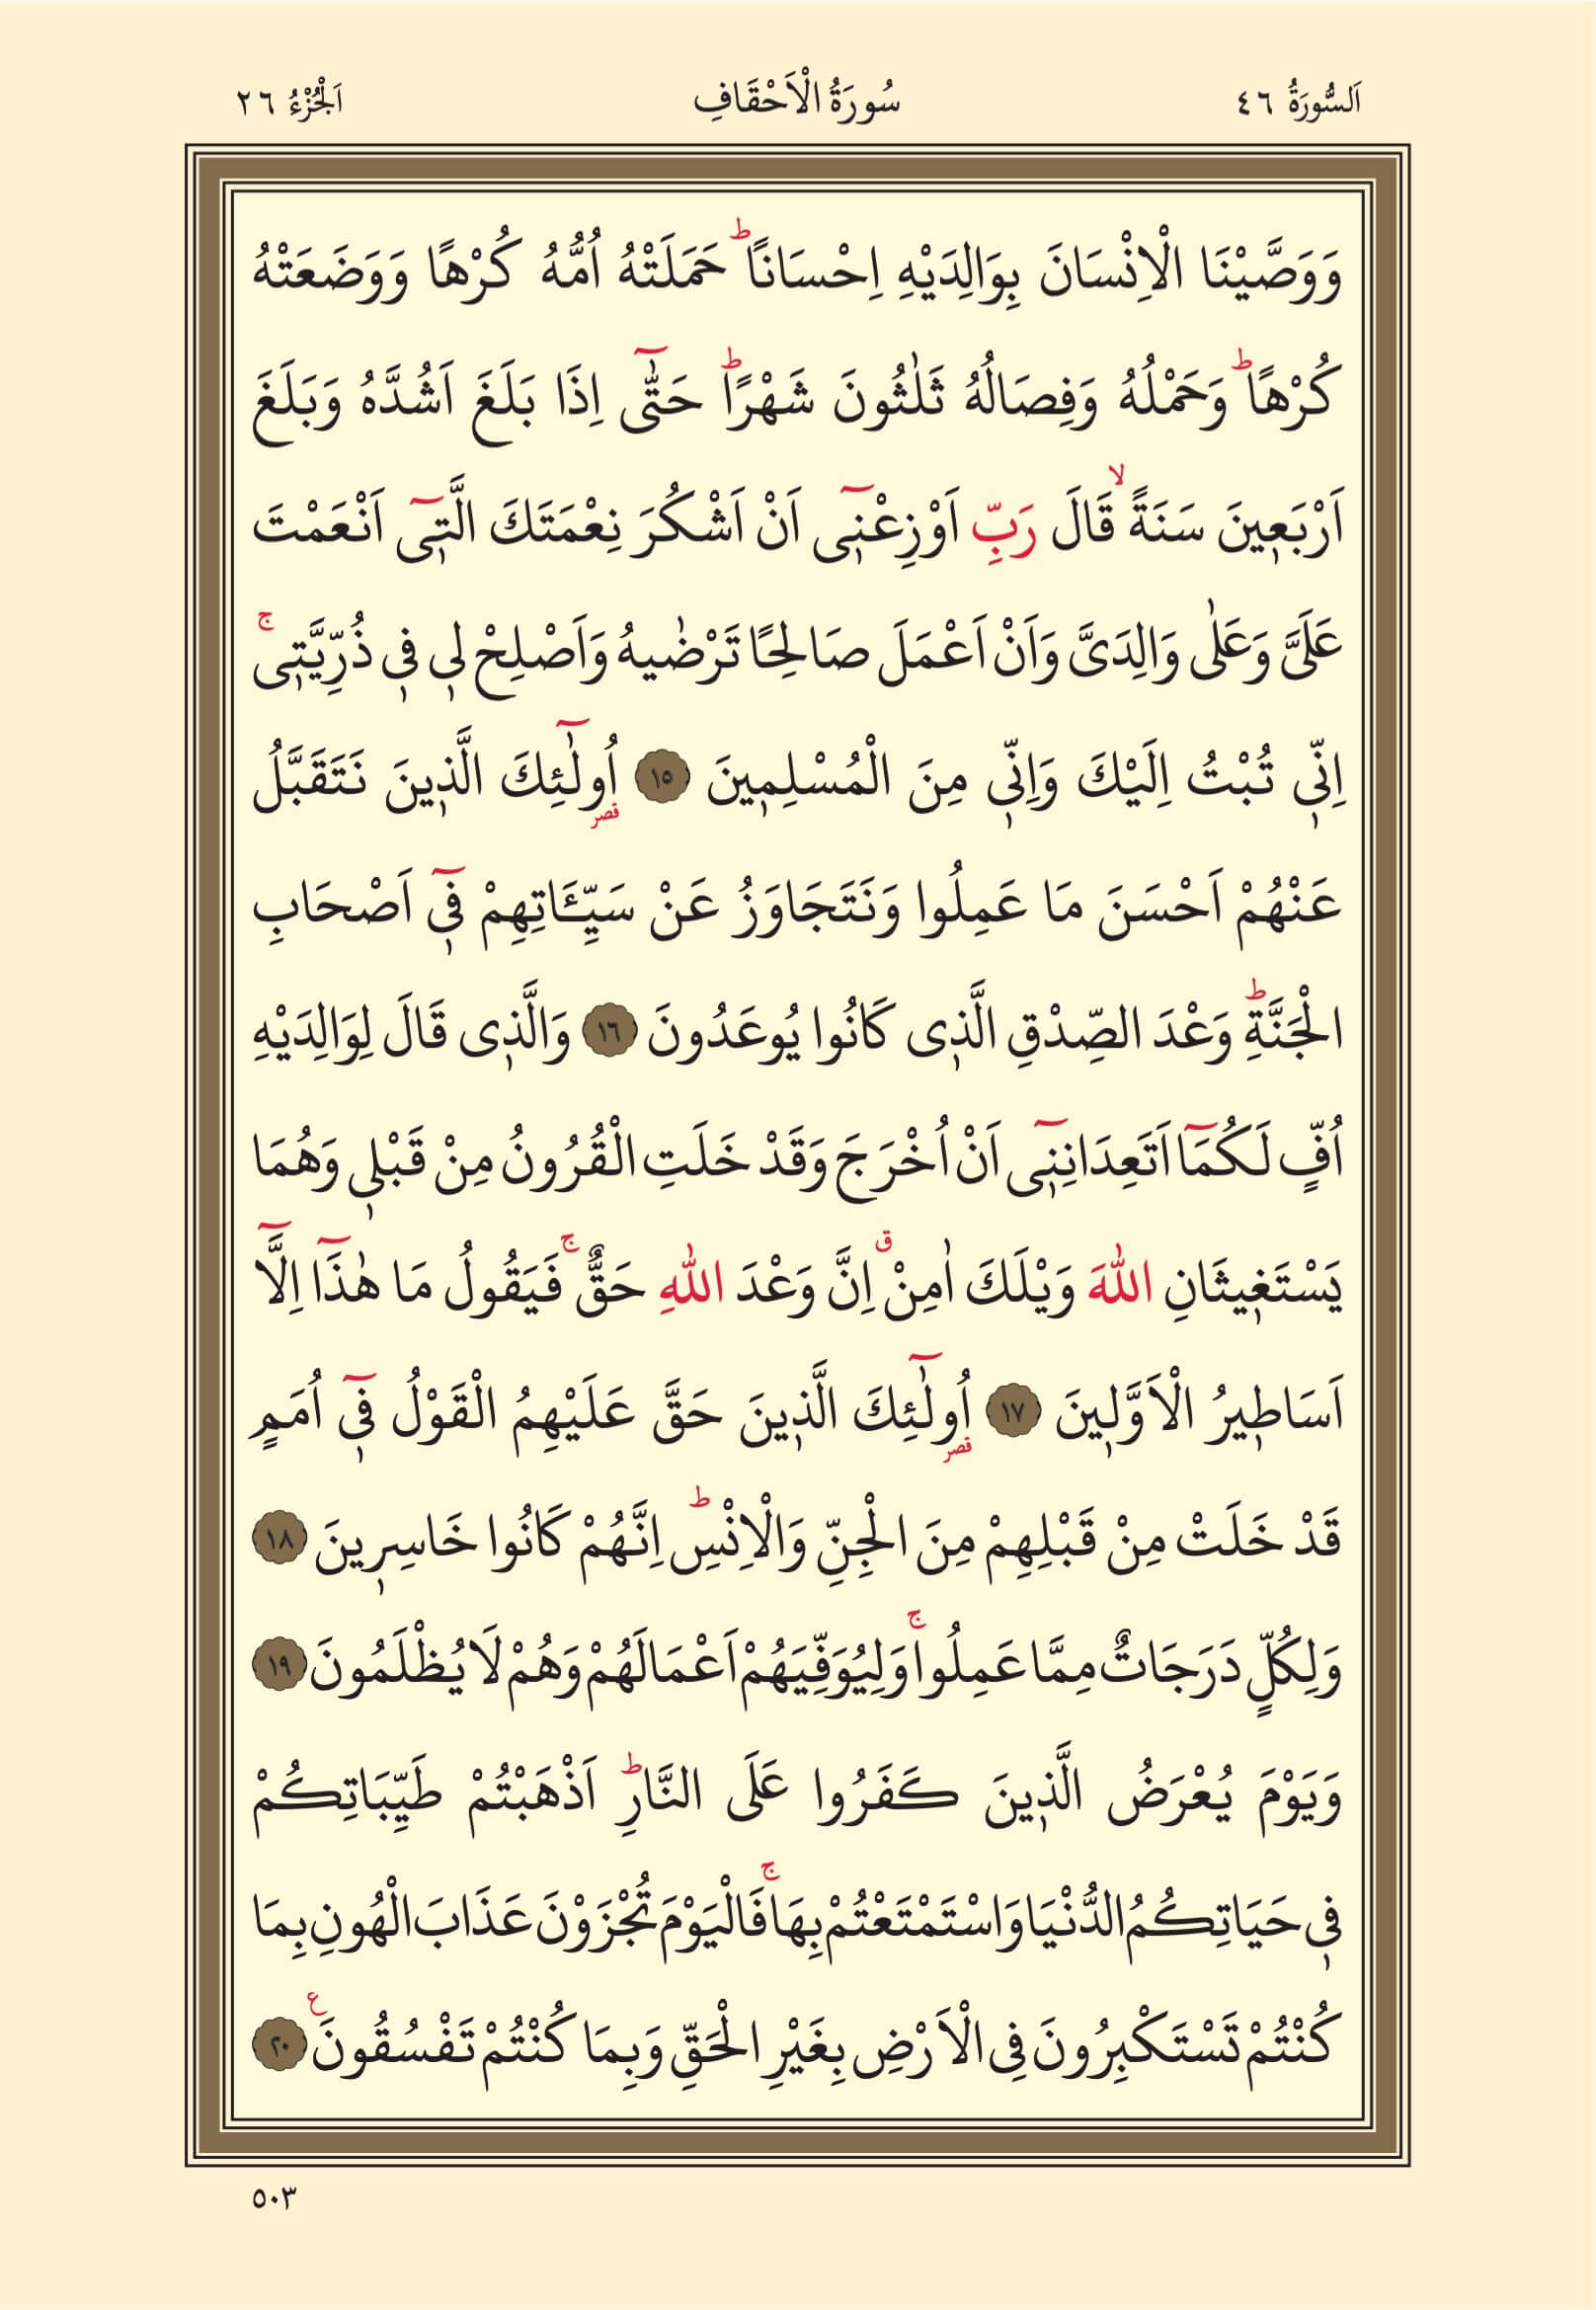 اَلسُّورَةُ ٤٦ سُورَةُ الْاَحْقَافِ اَلْجُزْءُ ٢٦
وَوَصَّيْنَا الْاِنْسَانَ بِوَالِدَيْهِ اِحْسَانًاۜ حَمَلَتْهُ اُمُّهُ كُرْهًا وَوَضَعَتْهُ
كُرْهًاۜ وَحَمْلُهُ وَفِصَالُهُ ثَلٰثُونَ شَهْرًاۜ حَتّٰٓى اِذَا بَلَغَ اَشُدَّهُ وَبَلَغَ
اَرْبَع۪ينَ سَنَةًۙ قَالَ رَبِّ اَوْزِعْن۪ٓى اَنْ اَشْكُرَ نِعْمَتَكَ الَّت۪ٓى اَنْعَمْتَ
عَلَىَّ وَعَلٰى وَالِدَىَّ وَاَنْ اَعْمَلَ صَالِحًا تَرْضٰيهُ وَاَصْلِحْ ل۪ى ف۪ى ذُرِّيَّت۪ىۚ
اِنّ۪ى تُبْتُ اِلَيْكَ وَاِنّ۪ى مِنَ الْمُسْلِم۪ينَ ١٥ اُو۬لٰٓئِكَ الَّذ۪ينَ نَتَقَبَّلُ
قصر
عَنْهُمْ اَحْسَنَ مَا عَمِلُوا وَنَتَجَاوَزُ عَنْ سَيِّـَٔاتِهِمْ ف۪ٓى اَصْحَابِ
الْجَنَّةِۜ وَعْدَ الصِّدْقِ الَّذ۪ى كَانُوا يُوعَدُونَ ١٦ وَالَّذ۪ى قَالَ لِوَالِدَيْهِ
اُفٍّ لَكُمَٓا اَتَعِدَانِن۪ٓى اَنْ اُخْرَجَ وَقَدْ خَلَتِ الْقُرُونُ مِنْ قَبْل۪ى وَهُمَا
يَسْتَغ۪يثَانِ اللّٰهَ وَيْلَكَ اٰمِنْۗ اِنَّ وَعْدَ اللّٰهِ حَقٌّۚ فَيَقُولُ مَا هٰذَٓا اِلَّٓا
اَسَاط۪يرُ الْاَوَّل۪ينَ ١٧ اُو۬لٰٓئِكَ الَّذ۪ينَ حَقَّ عَلَيْهِمُ الْقَوْلُ ف۪ٓى اُمَمٍ
قصر
قَدْ خَلَتْ مِنْ قَبْلِهِمْ مِنَ الْجِنِّ وَالْاِنْسِۜ اِنَّهُمْ كَانُوا خَاسِر۪ينَ ١٨
وَلِكُلٍّ دَرَجَاتٌ مِمَّا عَمِلُواۚ وَلِيُوَفِّيَهُمْ اَعْمَالَهُمْ وَهُمْ لَا يُظْلَمُونَ ١٩
وَيَوْمَ يُعْرَضُ الَّذ۪ينَ كَفَرُوا عَلَى النَّارِۜ اَذْهَبْتُمْ طَيِّبَاتِكُمْ
ف۪ى حَيَاتِكُمُ الدُّنْيَا وَاسْتَمْتَعْتُمْ بِهَاۚ فَالْيَوْمَ تُجْزَوْنَ عَذَابَ الْهُونِ بِمَا
كُنْتُمْ تَسْتَكْبِرُونَ فِى الْاَرْضِ بِغَيْرِ الْحَقِّ وَبِمَا كُنْتُمْ تَفْسُقُونَ ع ٢٠
٥٠٣